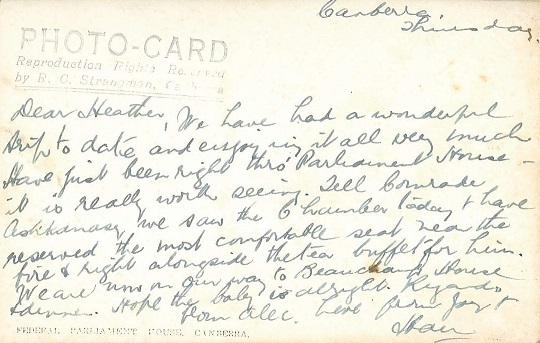 Canberra
Thursday.
PHOTO-CARD
Reproduction Rights Reserved
by R. C. Strangman, Canberra
Dear Heather, We have had a wonderful
trip to date and enjoying it all very much
Have just been right thro' Parliament House -
it is really worth seeing. Tell Comrade
Ashkanasy we saw the Chamber today & have
reserved the most comfortable seat near the
fire & right alongside the tea buffet for him.
We are now on our way to Beauchamp House
& dinner. Hope the baby is alright. Regards
from Alec. Love from Joy &
FEDERAL PARLIAMENT HOUSE, CANBERRA.